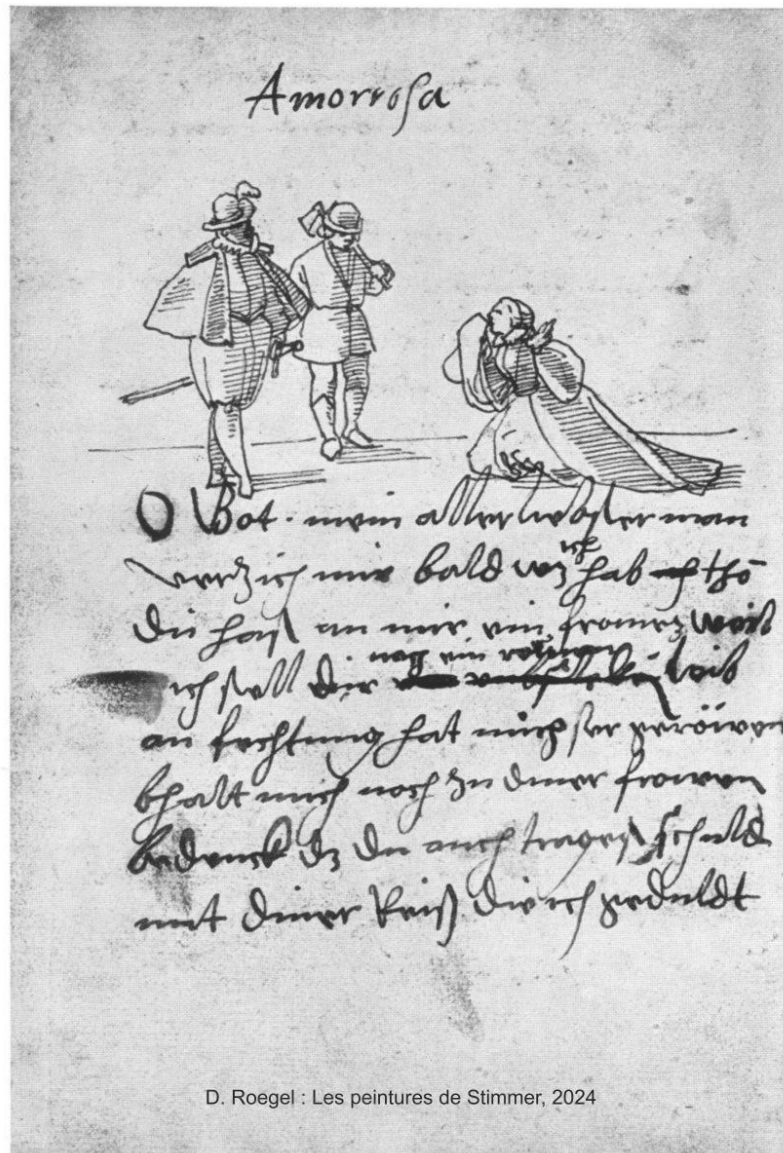 Amorrosa
O Bot. mein allerliebster man
verzich mir bald wz ich hab thō
du hast an mir ein fromez weib
ich stell dir noch ein reinen leib
an fechtung hat mich ser geröiwen
bhalt mich noch zu diner frowen
bedenck dz du auch tragest schuld
mit diner Reiß die ich geduldt
D. Roegel : Les peintures de Stimmer, 2024